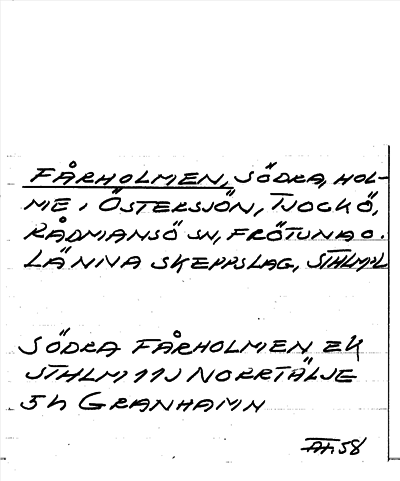 FÅRHOLMEN, SÖDRA, HOL-
ME I ÖSTERSJÖN, TJOCKÖ,
RÅDMANSÖ SN, FRÖTUNA O.
LÄNNA SKEPPSLAG, STHLM:L
SÖDRA FÅRHOLMEN EK
STHLM 11J NORRTÄLJE
5h GRANHAMN
58